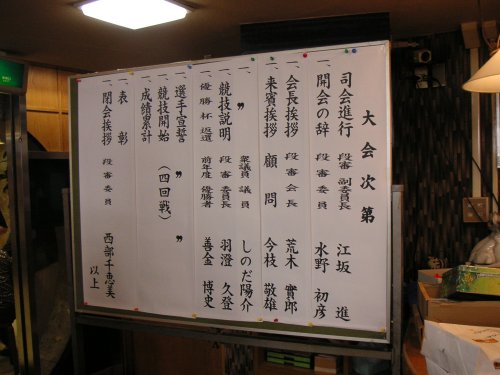 大会次第
司会進行 段審 副委員長 江坂 進
一、開会の辞 段審 委員 水野 初彦
一、会長挨拶 段審 会長 荒木 實郎
一、来賓挨拶 顧問 今枝 敬雄
〃 衆議員 議員 しのだ陽介
一、競技説明 段審 委員長 羽澄 久登
一、優勝杯返還 前年度 優勝者 善金 博史
一、選手宣誓 〃
一、競技開始 (四回戦) 〃
一、成績累計
一、表彰
一、閉会挨拶 段審 委員 西部千恵美
以上